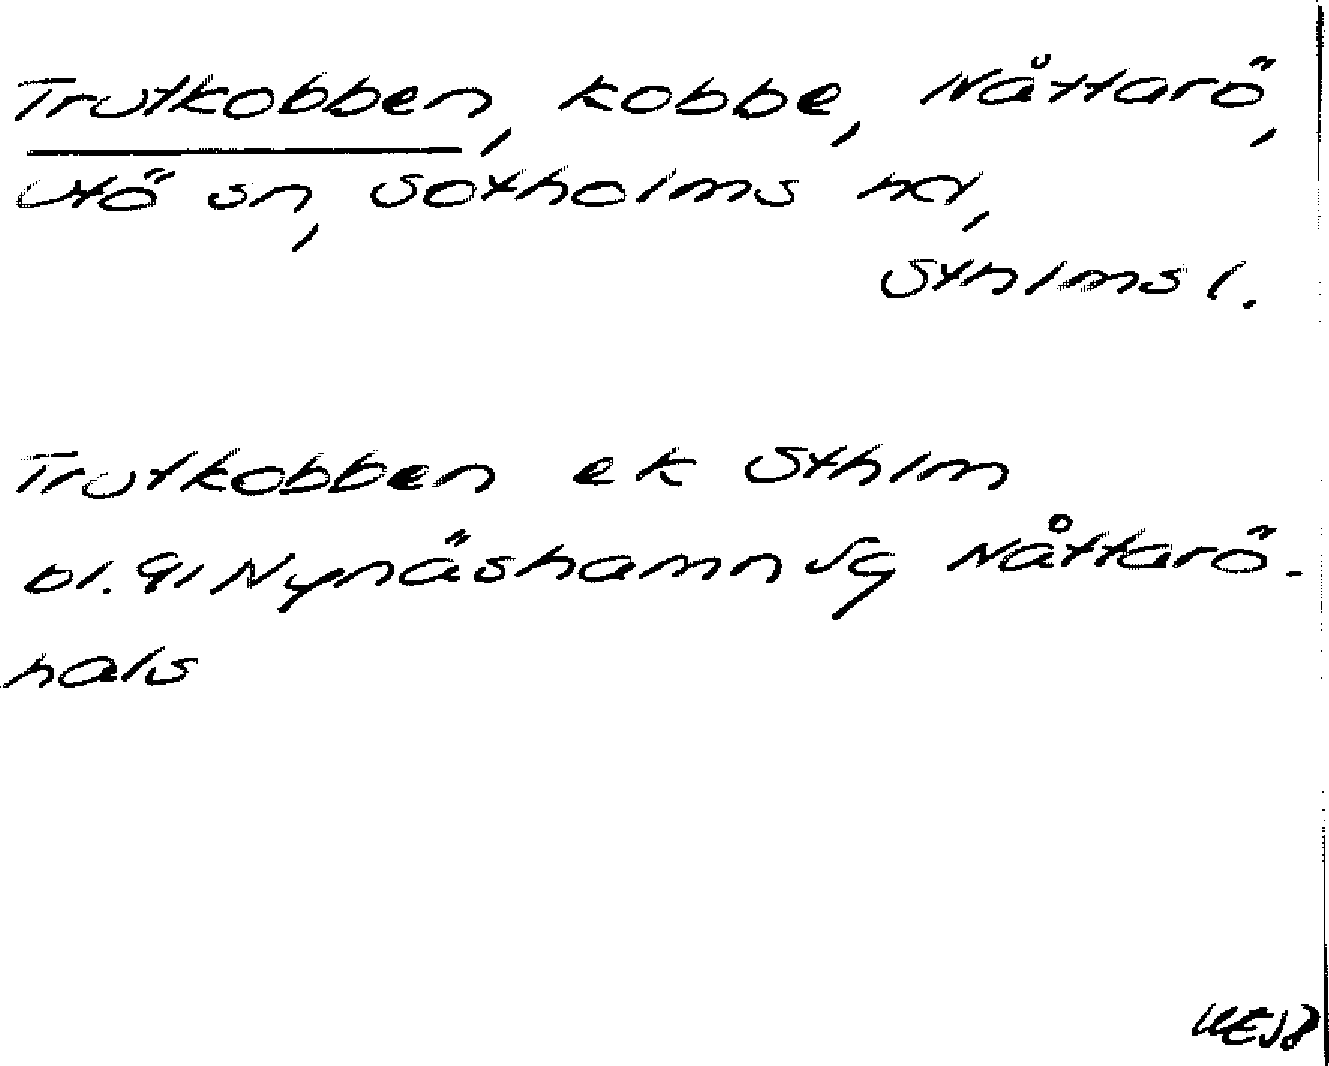 Trutkobben, kobbe, Nåttarö,
Utö sn, Sotholms hd,
Sthlms l.
Trutkobben ek Sthlm
bl. 91 Nynäshamn SG Nåttarö-
hals